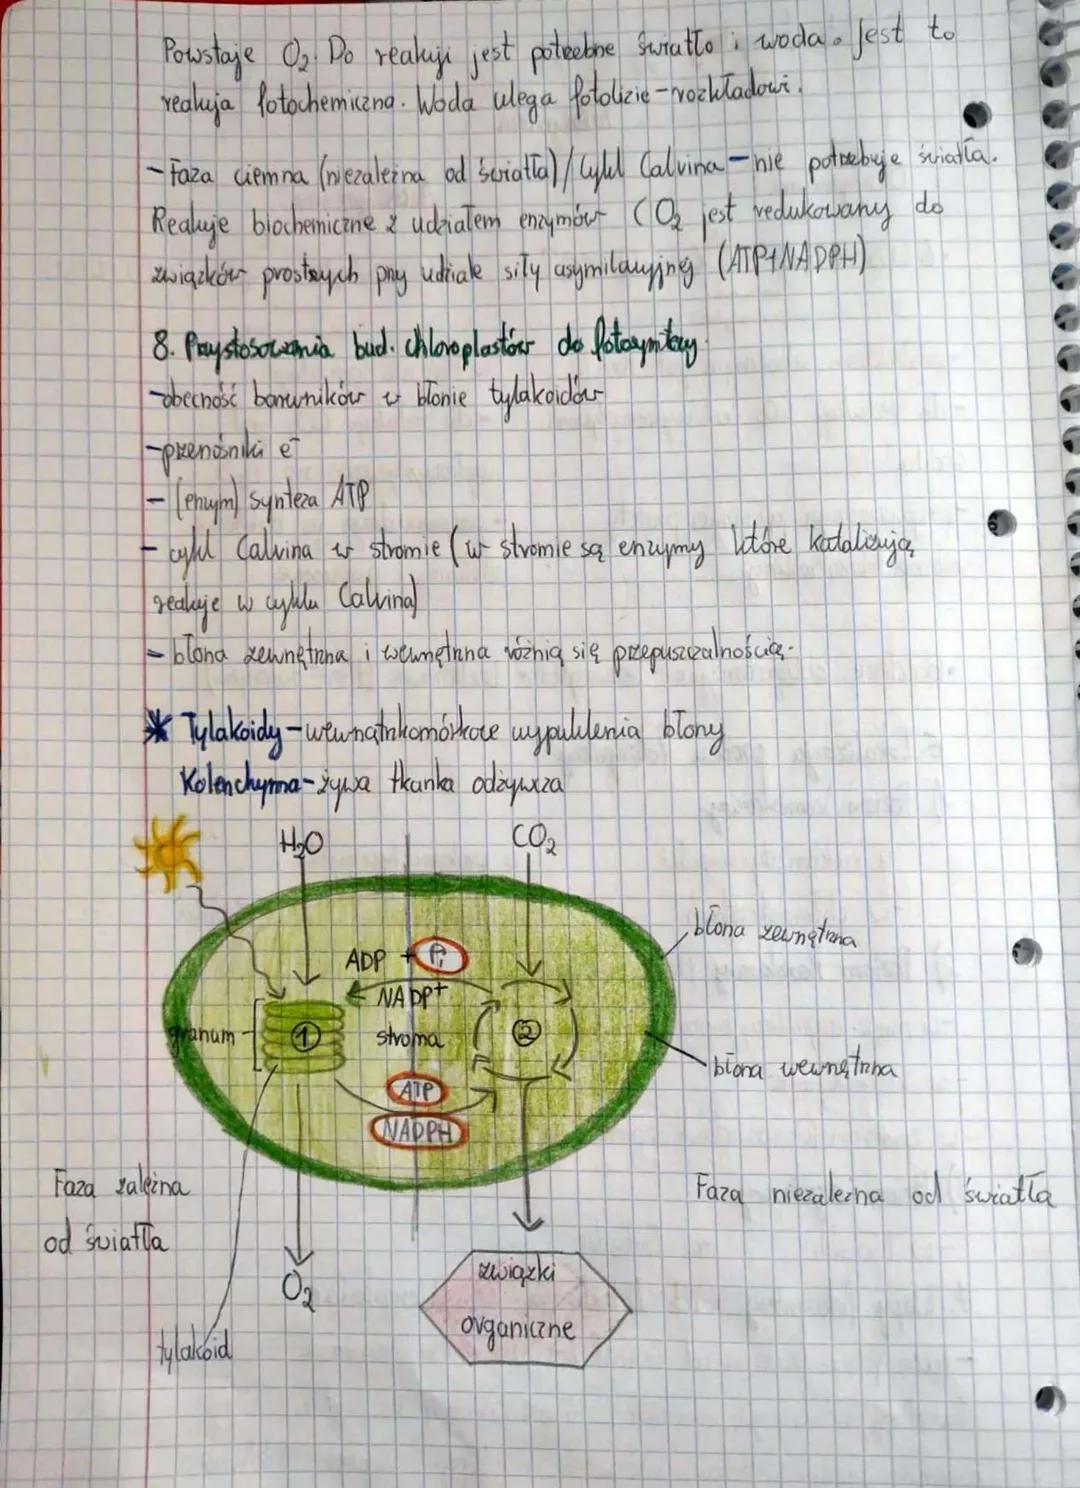 Powstaje O₂. Do reakcji jest potrzebne światło i woda. Jest to
reakcja fotochemiczna. Woda ulega fotolizie - rozkładowi.
- Faza ciemna (niezależna od światła) / Cykl Calvina - nie potrzebuje światła.
Reakcje biochemiczne z udziałem enzymów (CO₂ jest redukowany do
związków prostszych przy udziale siły asymilacyjnej (ATP+NADPH)
8. Przystosowania bud. chloroplastów do fotosyntezy
- obecność barwników w błonie tylakoidów
- przenośniki e⁻
- (enzym) synteza ATP
- cykl Calvina w stromie (w stromie są enzymy które katalizują
reakcje w cyklu Calvina)
- błona zewnętrzna i wewnętrzna różnią się przepuszczalnością.
* Tylakoidy - wewnątrzkomórkowe wypuklenia błony
Kolenchyma - żywa tkanka odżywcza
H₂O
CO₂
błona zewnętrzna
ADP + Pi
NADP+
granum
1
stroma
2
błona wewnętrzna
ATP
NADPH
Faza zależna
od światła
Faza niezależna od światła
O₂
związki
organiczne
tylakoid